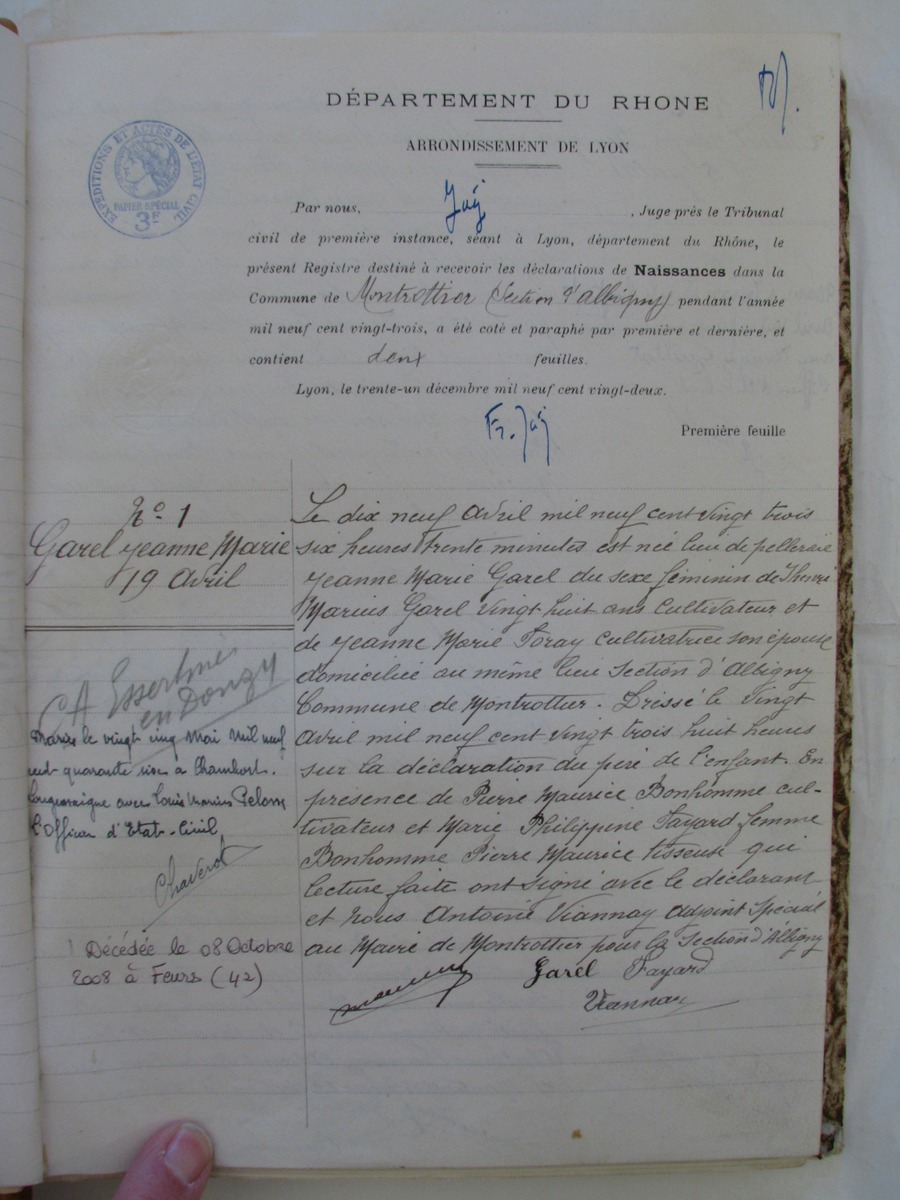 DÉPARTEMENT DU RHONE
ARRONDISSEMENT DE LYON
EXPÉDITIONS ET ACTES DE L'ÉTAT CIVIL
PAPIER SPÉCIAL
3F
Par nous, , Juge près le Tribunal
civil de première instance, séant à Lyon, département du Rhône, le
présent Registre destiné à recevoir les déclarations de Naissances dans la
Commune de Montrottier (Section d'Albigny) pendant l'année
mil neuf cent vingt-trois, a été coté et paraphé par première et dernière, et
contient deux feuilles.
Lyon, le trente-un décembre mil neuf cent vingt-deux.
Première feuille
No 1
Garel Jeanne Marie
19 Avril
Essertines
en Donzy
Mariée le vingt cinq Mai mil neuf
cent quarante six à Chambost
Longessaigne avec Louis Marius
l'Officier d'Etat-Civil
Chaverot
Décédée le 08 Octobre
2008 à Feurs (42)
Le dix neuf Avril mil neuf cent vingt trois
six heures trente minutes est née lieu de
Jeanne Marie Garel du sexe féminin de
Marius Garel vingt huit ans Cultivateur et
de Jeanne Marie Cultivatrice son épouse
domiciliée au même lieu Section d'Albigny
Commune de Montrottier. Dressé le Vingt
Avril mil neuf cent vingt trois huit heures
sur la déclaration du père de l'enfant. En
présence de Pierre Maurice Bonhomme cul-
tivateur et Marie Philippine Fayard femme
Bonhomme Pierre Maurice tisseuse qui
lecture faite ont signé avec le déclarant
et Nous Antoine Viannay adjoint Spécial
au Maire de Montrottier pour la Section d'Albigny
Garel Fayard
Viannay